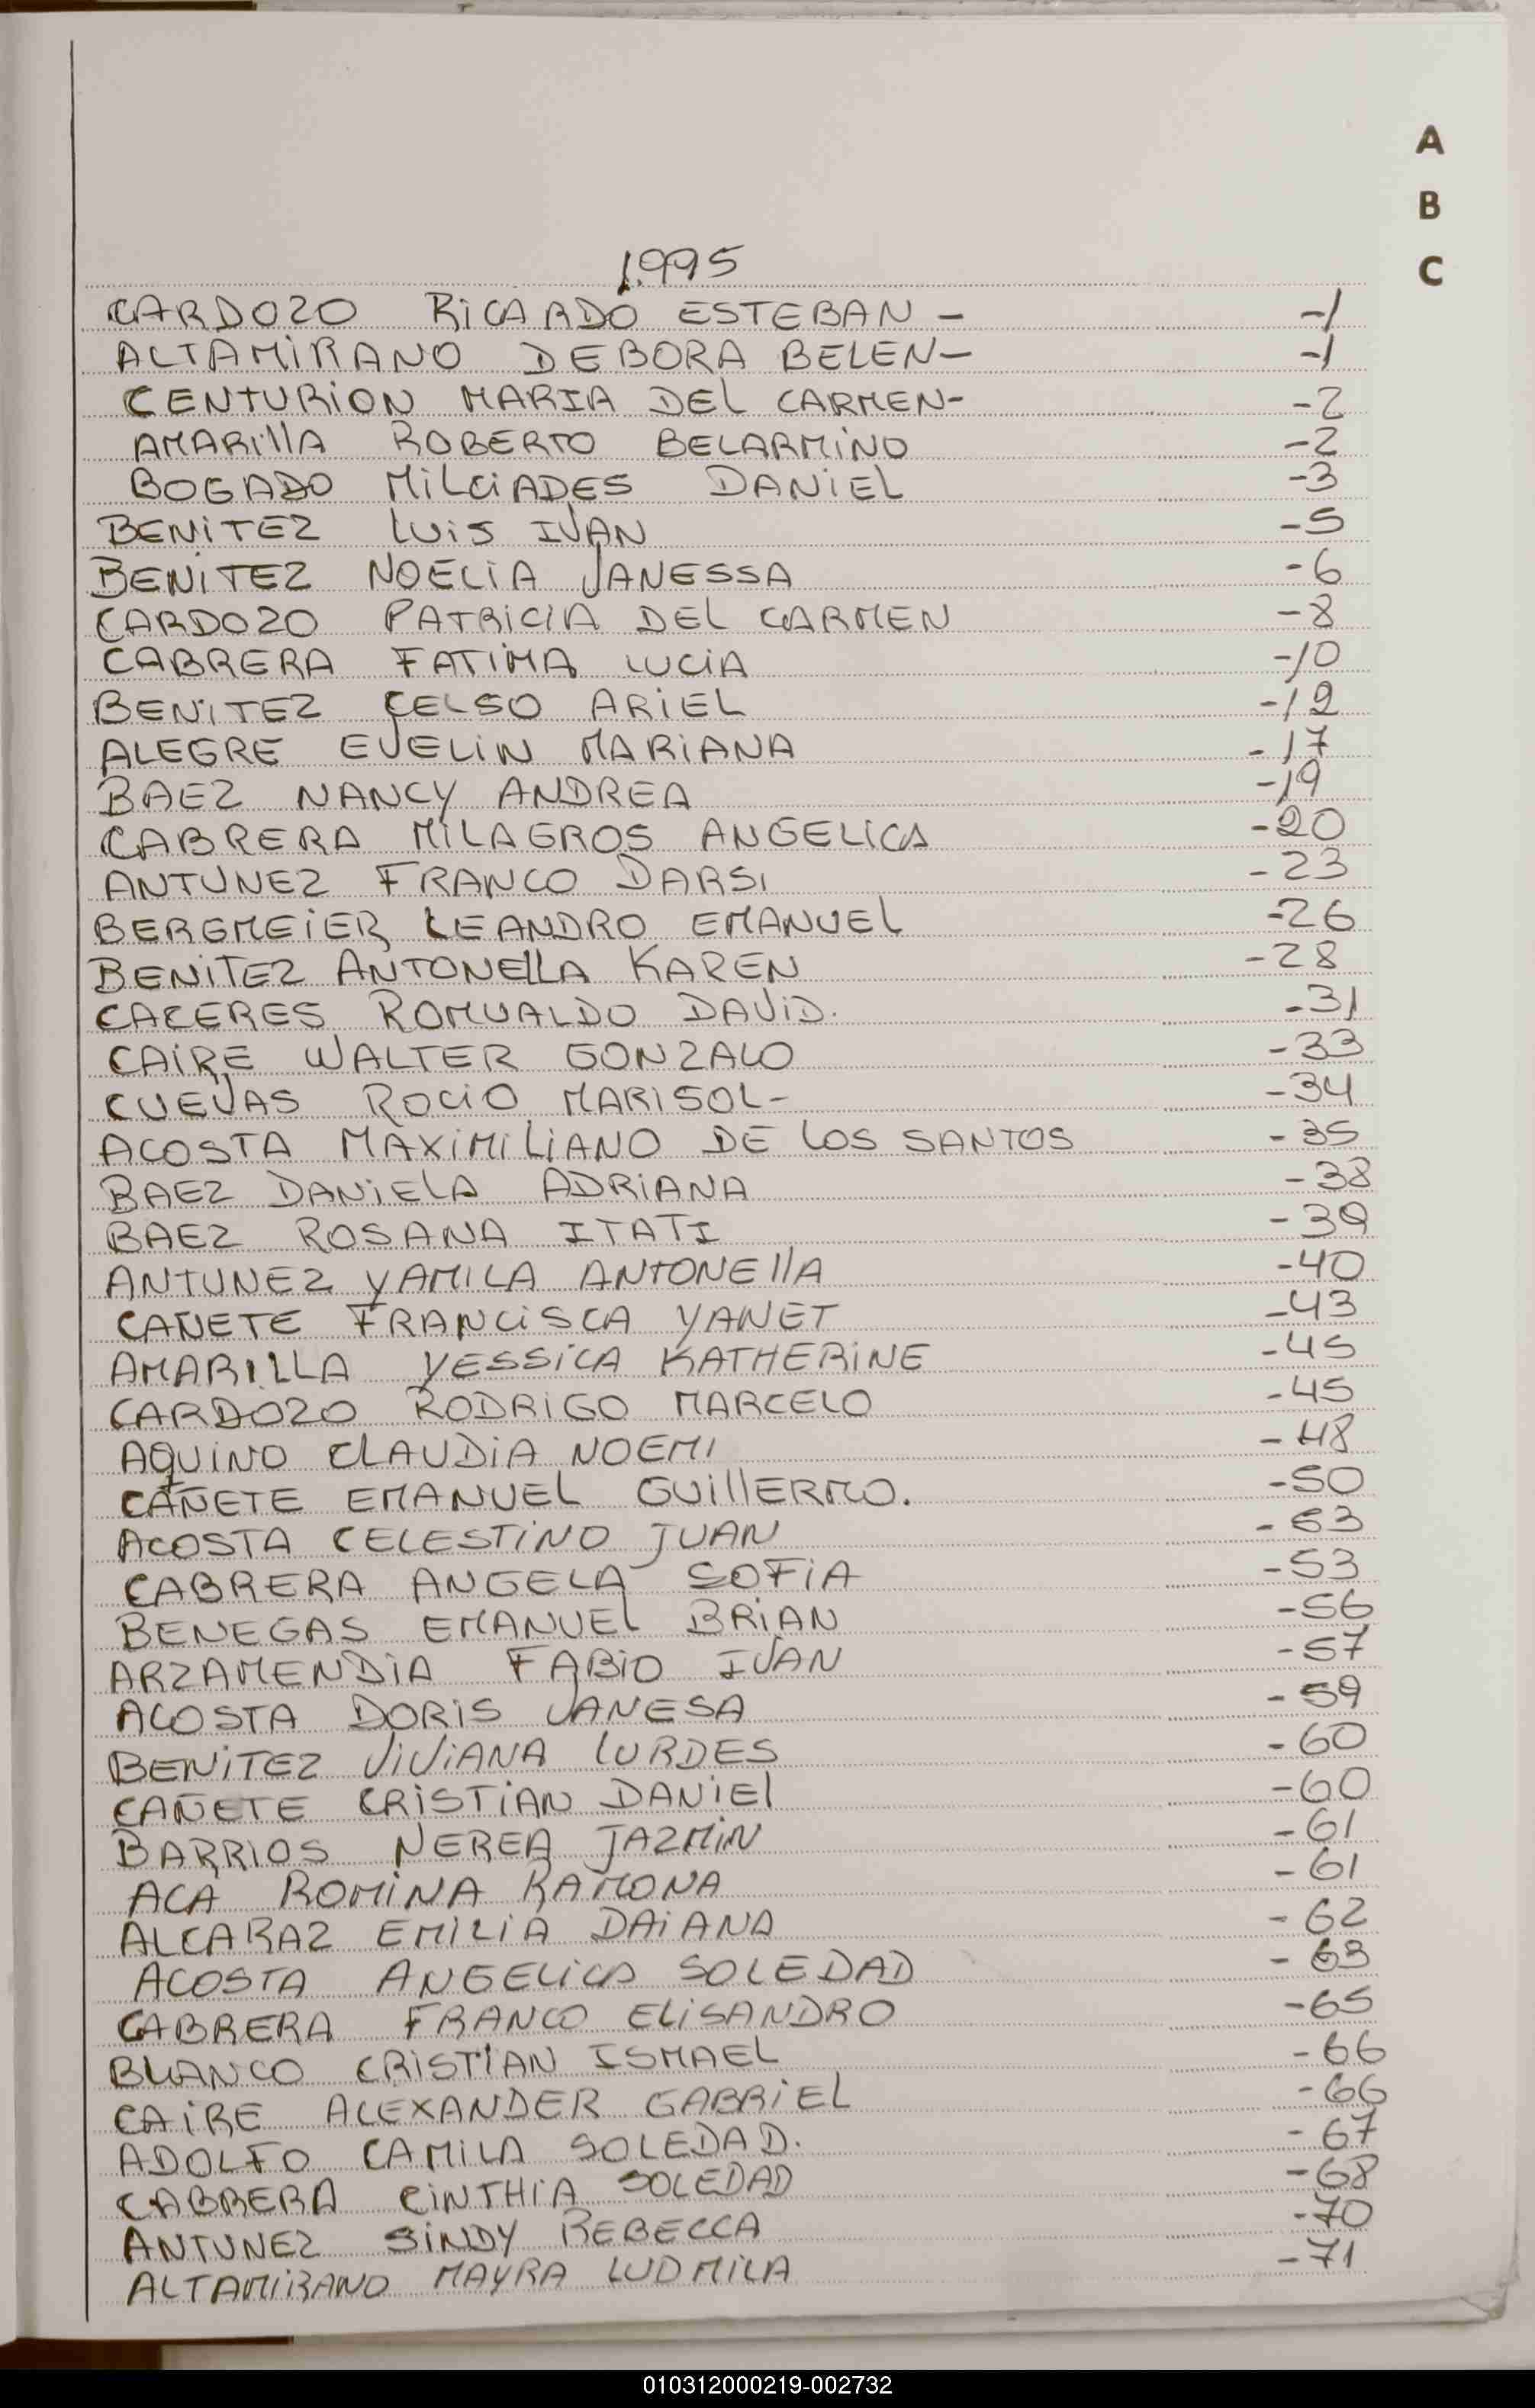 A
B
C
1995
CARDOZO RICARDO ESTEBAN - -1
ALTAMIRANO DEBORA BELEN- -1
CENTURION MARIA DEL CARMEN- -2
AMARIllA ROBERTO BELARMINO -2
BOGADO MILCIADES DANIEL -3
BENITEZ LUIS IVAN -5
BENITEZ NOELIA VANESSA -6
CARDOZO PATRICIA DEL CARMEN -8
CABRERA FATIMA LUCIA -10
BENITEZ CELSO ARIEL -12
ALEGRE EVELIN MARIANA -17
BAEZ NANCY ANDREA -19
CABRERA MILAGROS ANGELICA -20
ANTUNEZ FRANCO DARSI -23
BERGMEIER LEANDRO EMANUEL -26
BENITEZ ANTONELLA KAREN -28
CACERES ROMUALDO DAVID. -31
CAIRE WALTER GONZALO -33
CUEVAS ROCIO MARISOL- -34
ACOSTA MAXIMILIANO DE LOS SANTOS -35
BAEZ DANIELA ADRIANA -38
BAEZ ROSANA ITATI -39
ANTUNEZ YAMILA ANTONEllA -40
CAÑETE FRANCISCA YANET -43
AMARILLA YESSICA KATHERINE -45
CARDOZO RODRIGO MARCELO -45
AQUINO CLAUDIA NOEMI -48
CAÑETE EMANUEL GUIllERMO. -50
ACOSTA CELESTINO JUAN -53
CABRERA ANGELA SOFIA -53
BENEGAS EMANUEL BRIAN -56
ARZAMENDIA FABIO IVAN -57
ACOSTA DORIS VANESA -59
BENITEZ VIVIANA LURDES -60
CAÑETE CRISTIAN DANIEl -60
BARRIOS NEREA JAZMIN -61
ACA ROMINA RAMONA -61
ALCARAZ EMILIA DAIANA -62
ACOSTA ANGELICA SOLEDAD -63
CABRERA FRANCO ELISANDRO -65
BLANCO CRISTIAN ISMAEL -66
CAIRE ALEXANDER GABRIEL -66
ADOLFO CAMILA SOLEDAD. -67
CABRERA CINTHIA SOLEDAD -68
ANTUNEZ SINDY REBECCA -70
ALTAMIRANO MAYRA LUDMILA -71
010312000219-002732